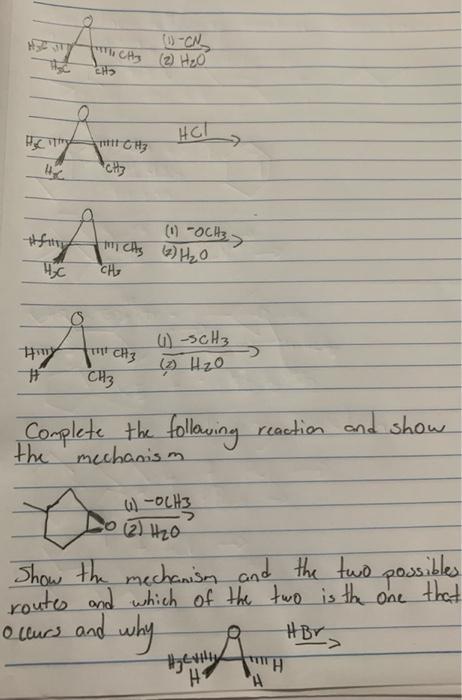 O
H3C CH3 (1) -CN
H3C CH3 (2) H2O
O
H3C CH3 HCl
H3C CH3
O
CH3 (1) -OCH3
H3C CH3 (2) H2O
O
H CH3 (1) -SCH3
H CH3 (2) H2O
Complete the following reaction and show
the mechanism
O (1) -OCH3
(2) H2O
Show the mechanism and the two possibles
routes and which of the two is the one that
occurs and why O HBr
H3C H
H H